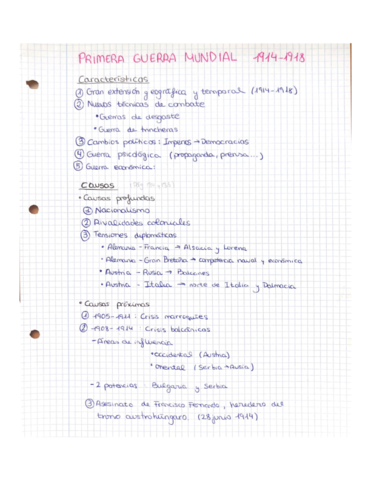 PRIMERA GUERRA MUNDIAL 1914-1918
Características
① Gran extensión geográfica y temporal (1914-1918)
② Nuevas técnicas de combate
• Guerras de desgaste
• Guerra de trincheras
③ Cambios políticos: Imperios → Democracias
④ Guerra psicológica (propaganda, prensa...)
⑤ Guerra económica:
Causas
• Causas profundas
① Nacionalismo
② Rivalidades coloniales
③ Tensiones diplomáticas
• Alemania - Francia → Alsacia y Lorena
• Alemania - Gran Bretaña → competencia naval y económica
• Austria - Rusia → Balcanes
• Austria - Italia → norte de Italia y Dalmacia
• Causas próximas
① 1905-1911: Crisis marroquíes
② 1908-1914 Crisis balcánicas
- Áreas de influencia
• occidental (Austria)
• oriental (Serbia → Rusia)
- 2 potencias: Bulgaria y Serbia
③ Asesinato de Francisco Fernando, heredero del
trono austrohúngaro. (28 junio 1914)